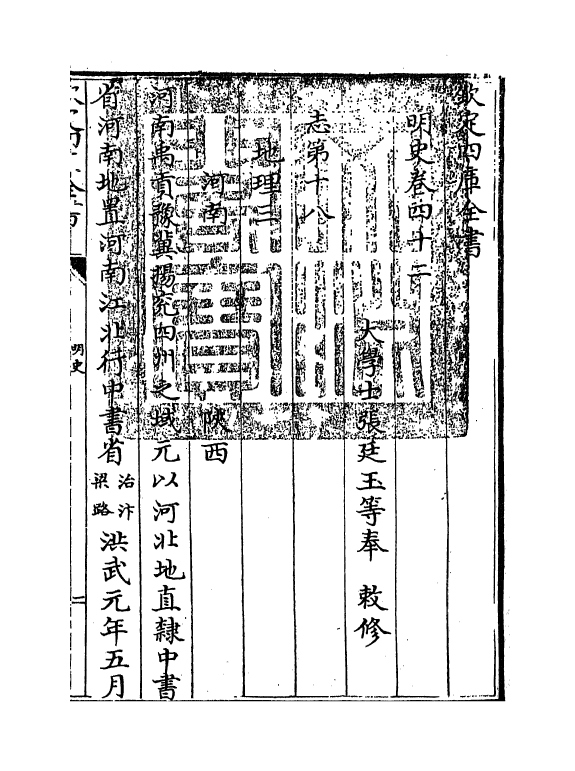 欽定四庫全書
明史卷四十二
大學士張廷玉等奉　敕修
志第十八
地理三
河南　陝西
河南禹貢豫冀揚兗四州之域元以河北地直隸中書
省河南地置河南江北行中書省治汴梁路洪武元年五月
明史